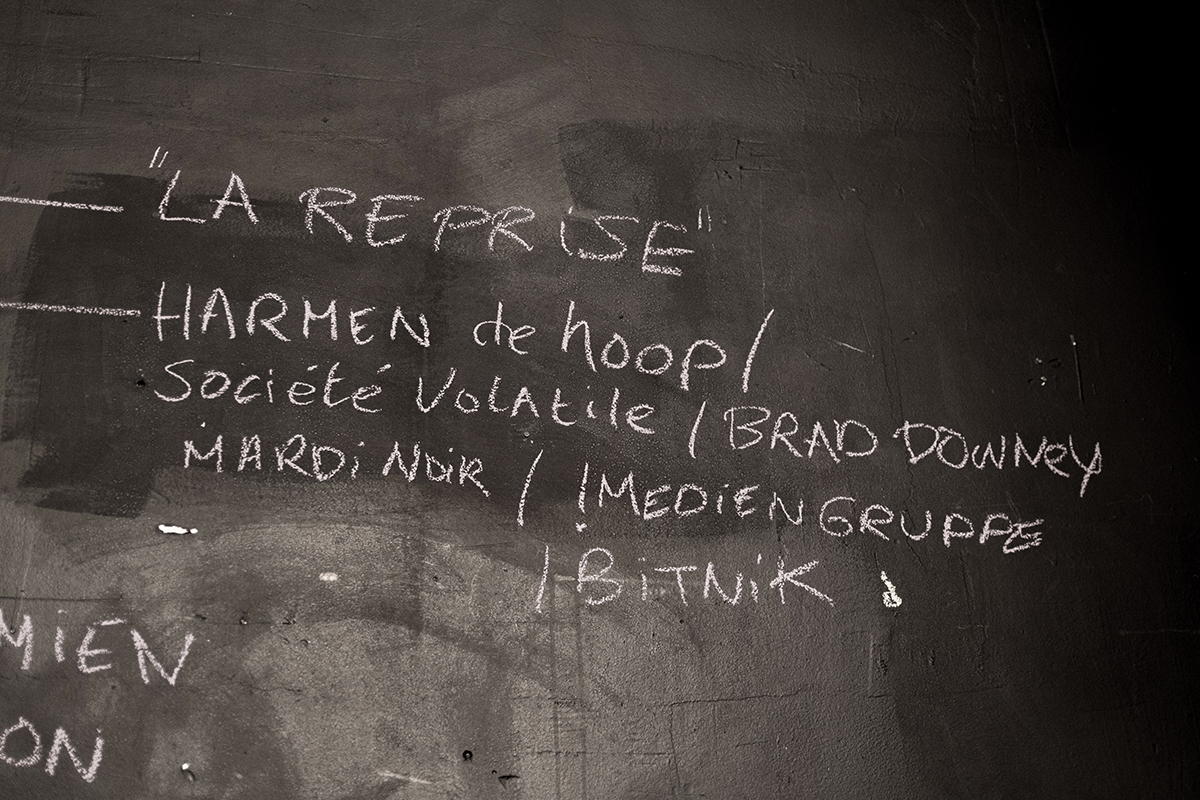 "LA REPRISE"
HARMEN de hoop /
Société Volatile / BRAD DOWNEY
MARDI NOIR / !MEDIENGRUPPE
/BITNIK
MIEN
ON